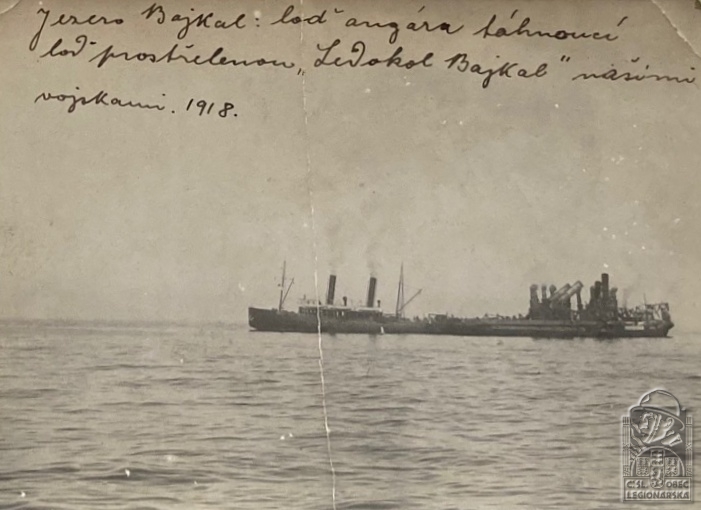 Jezero Bajkal: loď angára táhnoucí
loď prostřelenou „Ledokol Bajkal" našimi
vojskami. 1918.
ČSL. OBEC
LEGIONÁŘSKÁ